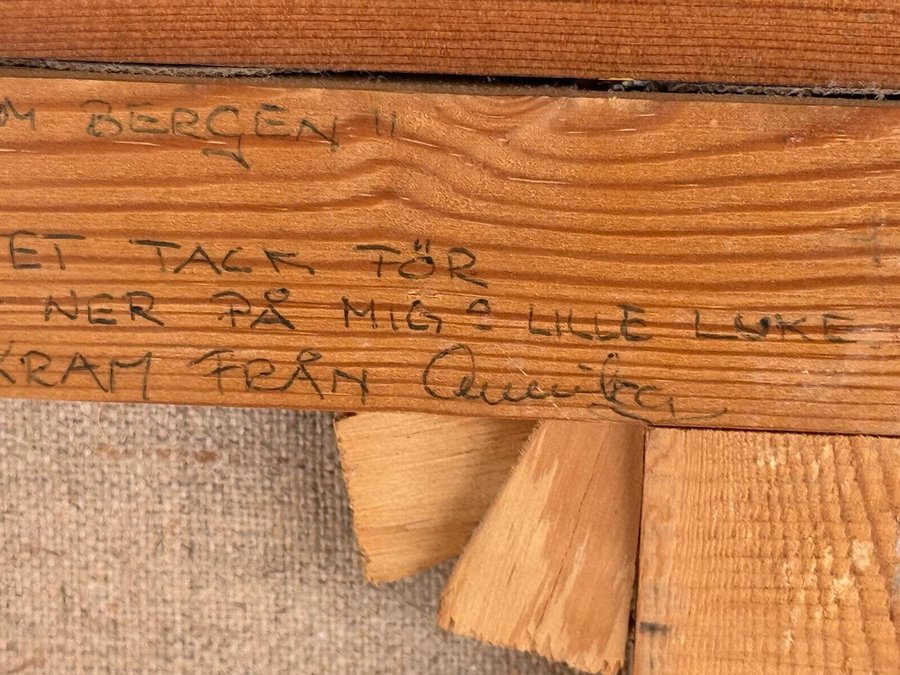 M BERGEN II
ET TACK FÖR
NER PÅ MIG? LILLE LUKE
KRAM FRÅN Annika